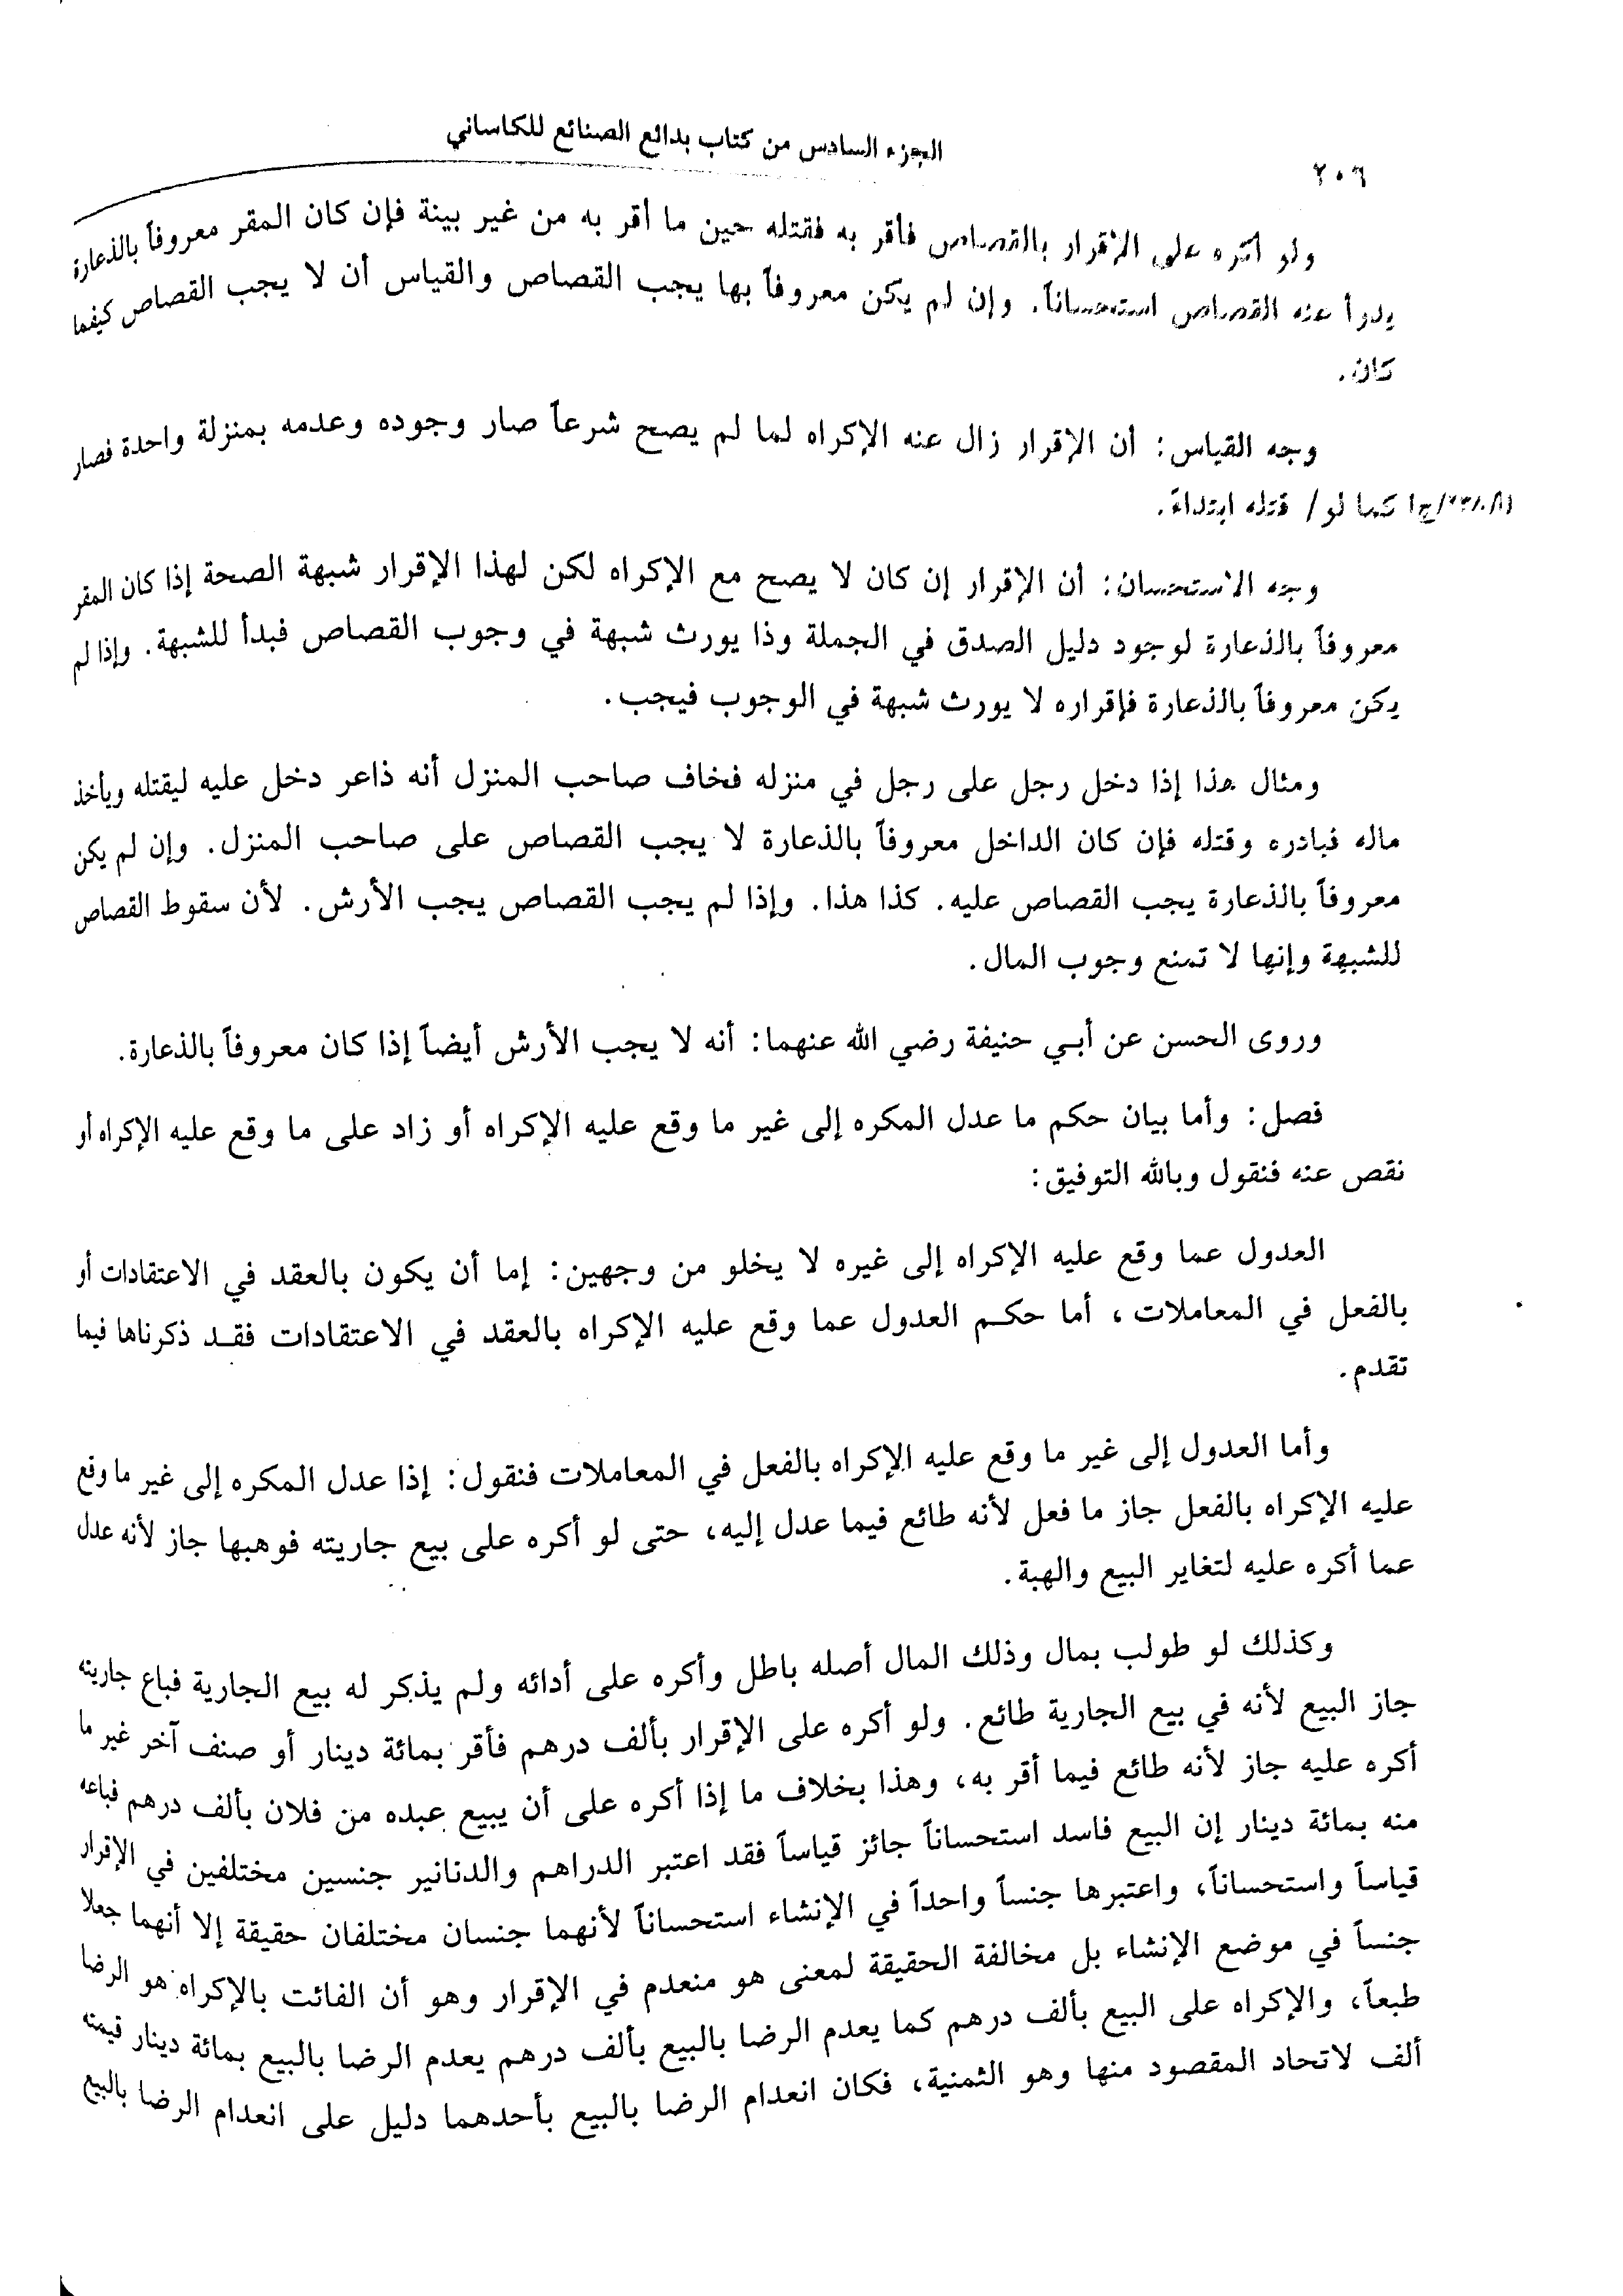 ٢٠٦
الجزء السادس من كتاب بدائع الصنائع للكاساني
ولو أكره على الإقرار بالقصاص فأقر به فقتله حين ما أقر به من غير بينة فإن كان المقر معروفاً بالذعارة
يدرأ عنه القصاص استحساناً. وإن لم يكن معروفاً بها يجب القصاص والقياس أن لا يجب القصاص كيفما
كان.
وجه القياس: أن الإقرار زال عنه الإكراه لما لم يصح شرعاً صار وجوده وعدمه بمنزلة واحدة فصار
كما لو/ قتله ابتداءً.
وجه الاستحسان: أن الإقرار إن كان لا يصح مع الإكراه لكن لهذا الإقرار شبهة الصحة إذا كان المقر
معروفاً بالذعارة لوجود دليل الصدق في الجملة وذا يورث شبهة في وجوب القصاص فبدأ للشبهة. وإذا لم
يكن معروفاً بالذعارة فإقراره لا يورث شبهة في الوجوب فيجب.
ومثال هذا إذا دخل رجل على رجل في منزله فخاف صاحب المنزل أنه ذاعر دخل عليه ليقتله ويأخذ
ماله فبادره وقتله فإن كان الداخل معروفاً بالذعارة لا يجب القصاص على صاحب المنزل. وإن لم يكن
معروفاً بالذعارة يجب القصاص عليه. كذا هذا. وإذا لم يجب القصاص يجب الأرش. لأن سقوط القصاص
للشبهة وإنها لا تمنع وجوب المال.
وروى الحسن عن أبي حنيفة رضي الله عنهما: أنه لا يجب الأرش أيضاً إذا كان معروفاً بالذعارة.
فصل: وأما بيان حكم ما عدل المكره إلى غير ما وقع عليه الإكراه أو زاد على ما وقع عليه الإكراه أو
نقص عنه فنقول وبالله التوفيق:
العدول عما وقع عليه الإكراه إلى غيره لا يخلو من وجهين: إما أن يكون بالعقد في الاعتقادات أو
بالفعل في المعاملات، أما حكم العدول عما وقع عليه الإكراه بالعقد في الاعتقادات فقد ذكرناها فيما
تقدم.
وأما العدول إلى غير ما وقع عليه الإكراه بالفعل في المعاملات فنقول: إذا عدل المكره إلى غير ما وقع
عليه الإكراه بالفعل جاز ما فعل لأنه طائع فيما عدل إليه، حتى لو أكره على بيع جاريته فوهبها جاز لأنه عدل
عما أكره عليه لتغاير البيع والهبة.
وكذلك لو طولب بمال وذلك المال أصله باطل وأكره على أدائه ولم يذكر له بيع الجارية فباع جاريته
جاز البيع لأنه في بيع الجارية طائع. ولو أكره على الإقرار بألف درهم فأقر بمائة دينار أو صنف آخر غير ما
أكره عليه جاز لأنه طائع فيما أقر به، وهذا بخلاف ما إذا أكره على أن يبيع عبده من فلان بألف درهم فباعه
منه بمائة دينار إن البيع فاسد استحساناً جائز قياساً فقد اعتبر الدراهم والدنانير جنسين مختلفين في الإقرار
قياساً واستحساناً، واعتبرها جنساً واحداً في الإنشاء استحساناً لأنهما جنسان مختلفان حقيقة إلا أنهما جعلا
جنساً في موضع الإنشاء بل مخالفة الحقيقة لمعنى هو منعدم في الإقرار وهو أن الفائت بالإكراه هو الرضا
طبعاً، والإكراه على البيع بألف درهم كما يعدم الرضا بالبيع بألف درهم يعدم الرضا بالبيع بمائة دينار قيمته
ألف لاتحاد المقصود منها وهو الثمنية، فكان انعدام الرضا بالبيع بأحدهما دليل على انعدام الرضا بالبيع